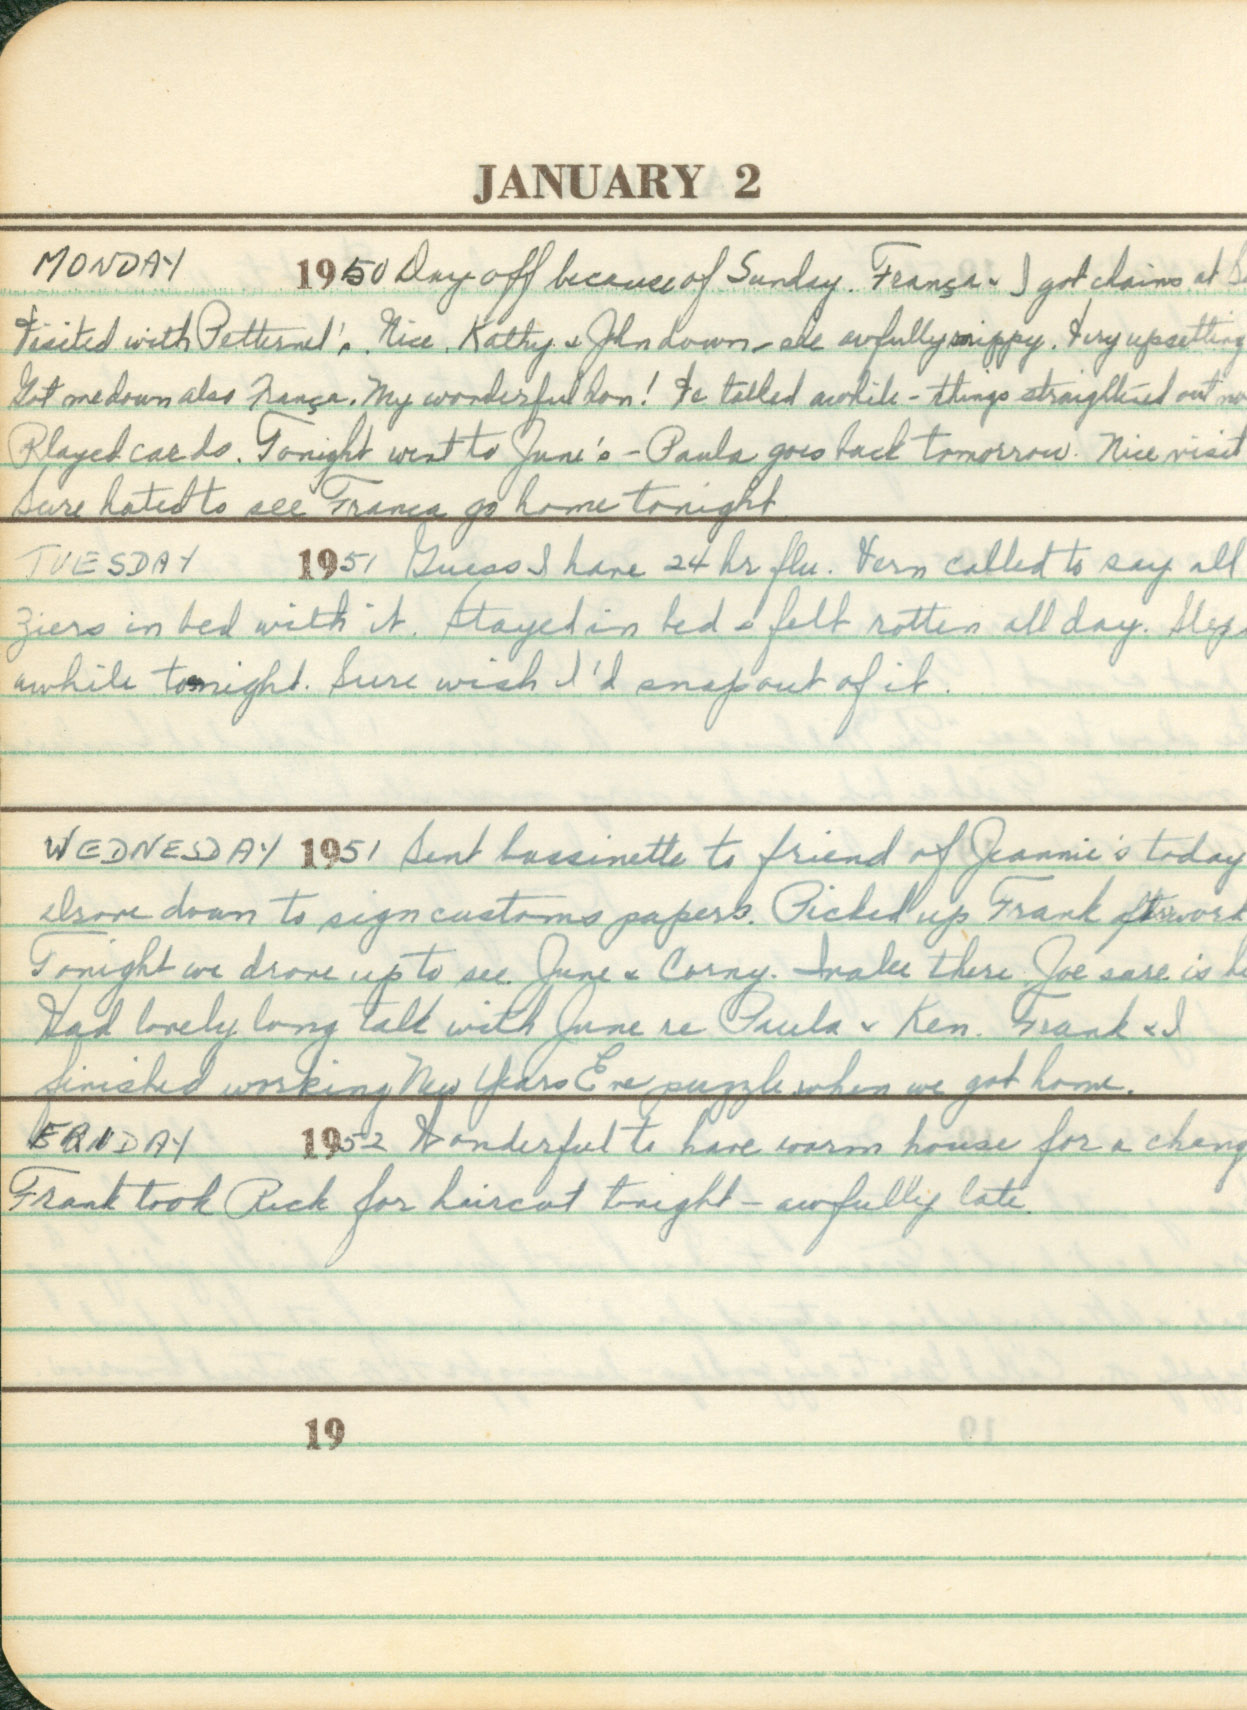 JANUARY 2
MONDAY 1950 Day off because of Sunday. França & I got chains at
Visited with Petternel's. Nice. Kathy & John down - she awfully snippy. Very upsetting
Got me down also França. My wonderful hon! We talked awhile - things straightened out
Played cards. Tonight went to June's - Paula goes back tomorrow. Nice visit
Sure hated to see Franca go home tonight
TUESDAY 1951 Guess I have 24 hr flu. Vern called to say all
Ziers in bed with it. Stayed in bed & felt rotten all day.
awhile tonight. Sure wish I'd snap out of it.
WEDNESDAY 1951 Sent bassinette to friend of Jeannie's today
Drove down to sign customs papers. Picked up Frank after work
Tonight we drove up to see June & Corny. there Joe sure is
Had lovely long talk with June re Paula & Ken. Frank & I
finished working New Years Eve puzzle when we got home.
FRIDAY 1952 Wonderful to have warm house for a chang
Frank took Rick for haircut tonight - awfully late.
19